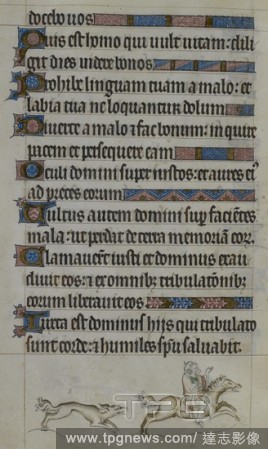 docebo vos
Quis est homo qui vult vitam: dili
git dies videre bonos
Prohibe linguam tuam a malo: et
labia tua ne loquantur dolum
Diverte a malo & fac bonum: inquire
pacem et persequere eam
Oculi domini super iustos: et aures ei'
ad preces eorum
Vultus autem domini sup facientes
mala: ut perdat de terra memoriā eor.
Clamaverūt iusti et dominus exau
divit eos: & ex omnibȝ tribulatōnibȝ
eorum liberavit eos
Iuxta est dominus hijs qui tribulato
sunt corde: & humiles spū salvabit.
TPG
www.tpgnews.com/ 達志影像